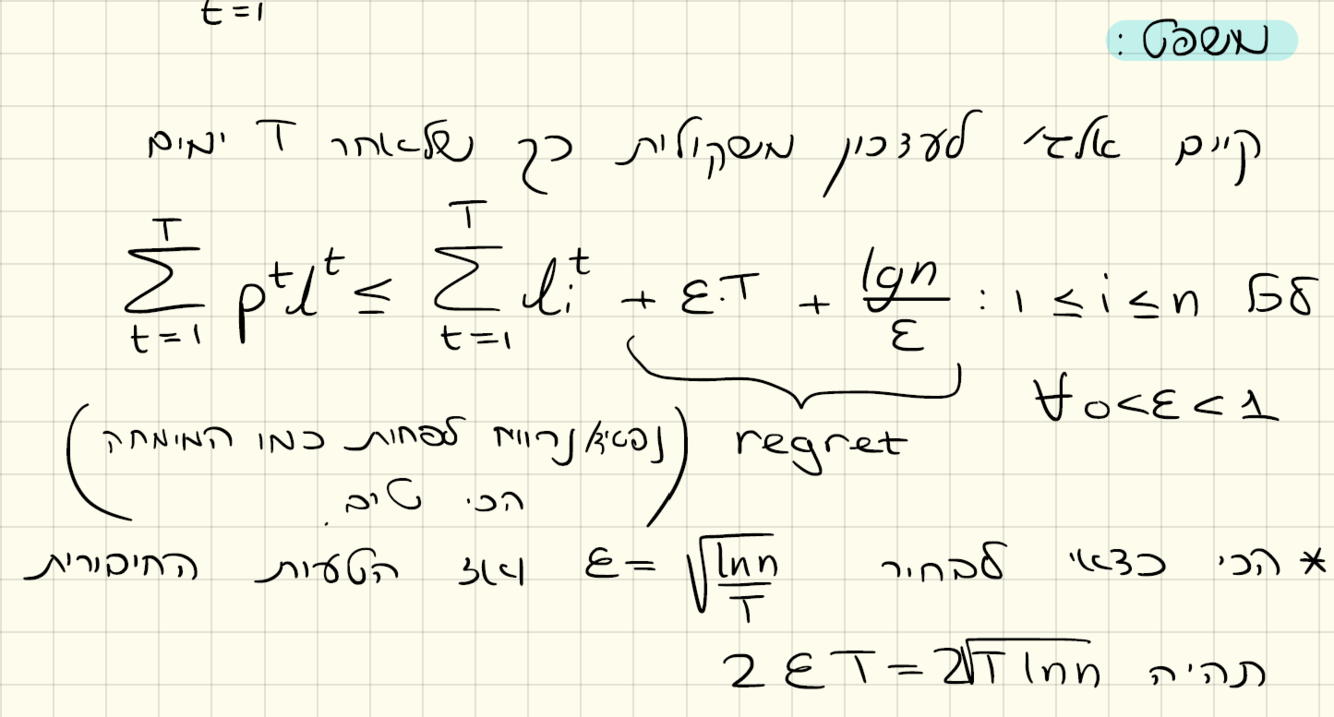 t=1
משפט :
קיים אלג' לעדכון משקולות כך שלאחר T ימים
לכל 1 ≤ i ≤ n : \sum_{t=1}^{T} p^t l^t ≤ \sum_{t=1}^{T} l_i^t + ε·T + \frac{lg n}{ε}
∀ 0<ε<1
regret (נפסיד/נרוויח לפחות כמו המומחה
הכי טוב.)
* הכי כדאי לבחור ε = \sqrt{\frac{ln n}{T}} ואז הטעות החיבורית
תהיה 2 ε T = 2\sqrt{T ln n}